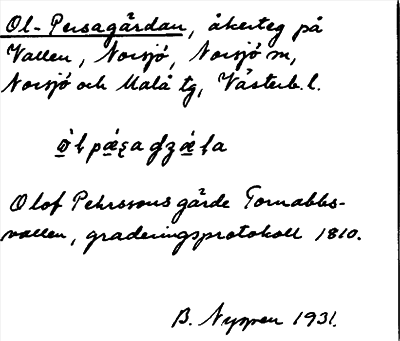 Ol-Persagårdan, åkerteg på
Vallen, Norsjö, Norsjö sn,
Norsjö och Malå tg, Västerb. l.
Olof Pehrssons gärde Tornabbs-
vallen, graderingsprotokoll 1810.
B. Nyppen 1931.